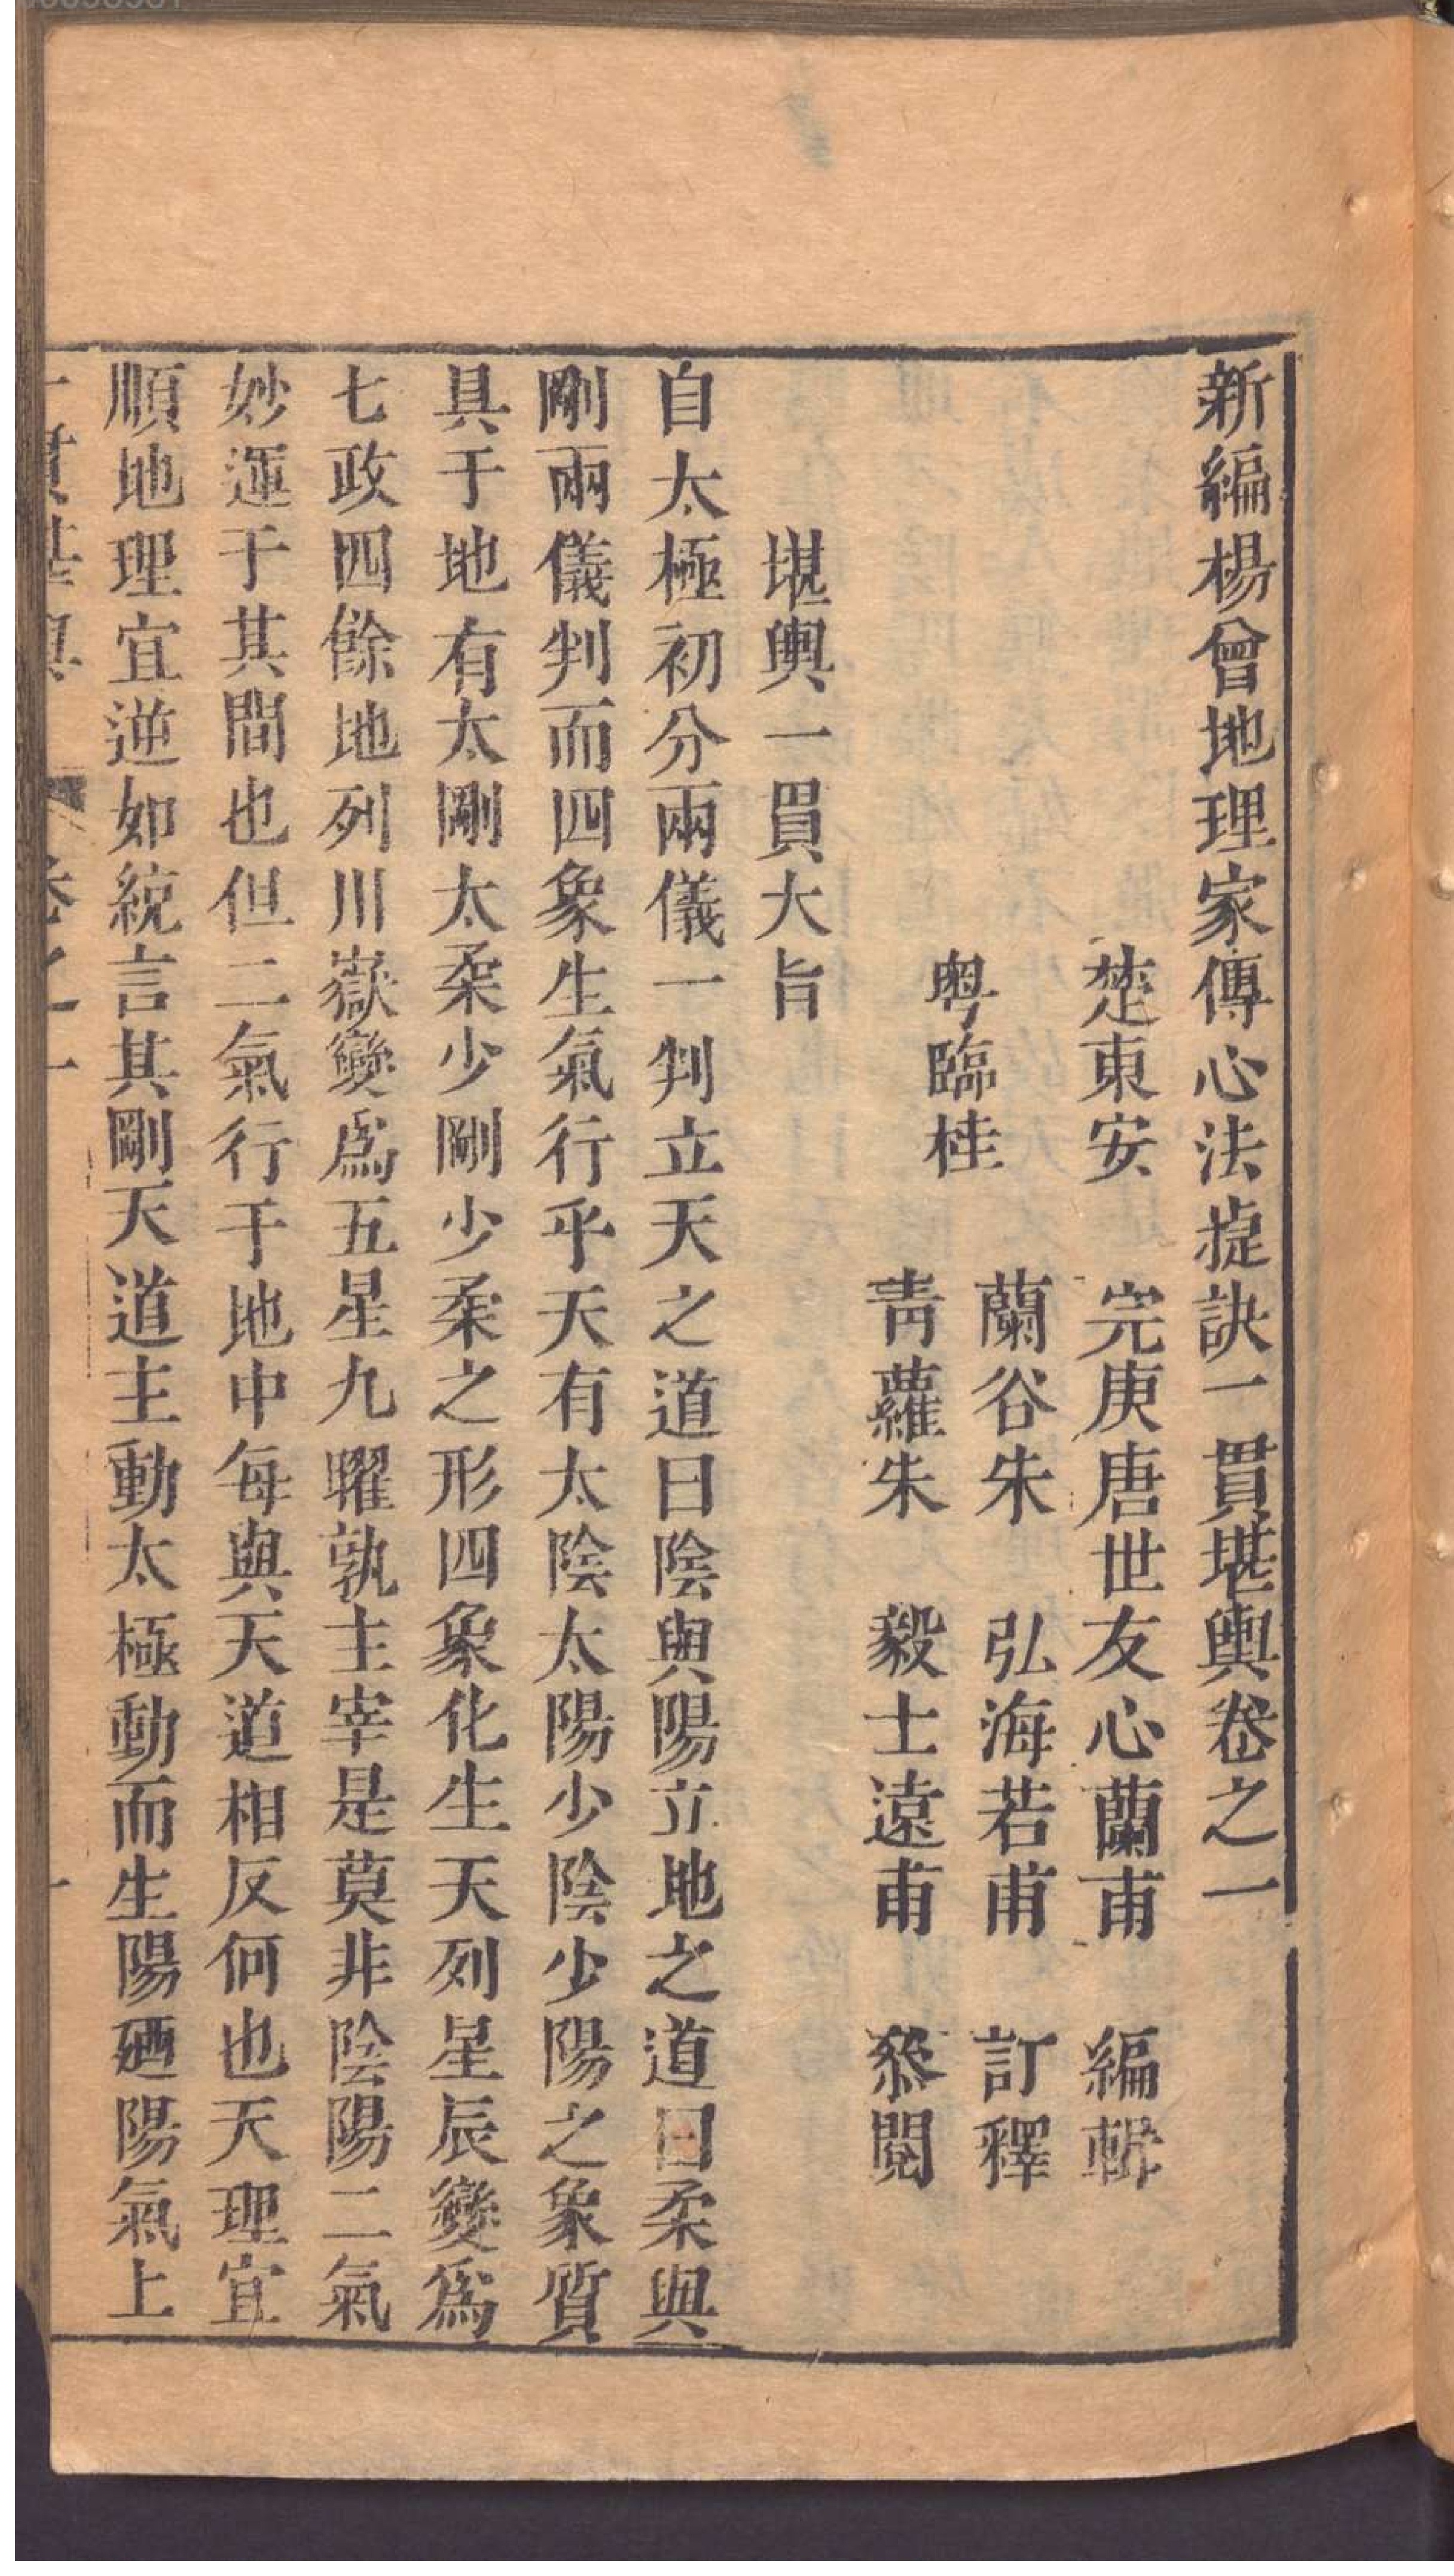 新編楊曾地理家傳心法捷訣一貫堪輿卷之一
楚東安 完庚唐世友心蘭甫 編輯
粤臨桂
蘭谷朱 弘海若甫 訂釋
青蘿朱 毅士遠甫 叅閱
堪輿一貫大旨
自太極初分兩儀一判立天之道曰陰與陽立地之道曰柔與
剛兩儀判而四象生氣行乎天有太陰太陽少陰少陽之象質
具于地有太剛太柔少剛少柔之形四象化生天列星辰變為
七政四餘地列川嶽變爲五星九曜孰主宰是莫非陰陽二氣
妙運于其間也但二氣行于地中每與天道相反何也天理宜
順地理宜逆如統言其剛天道主動太極動而生陽廼陽氣上